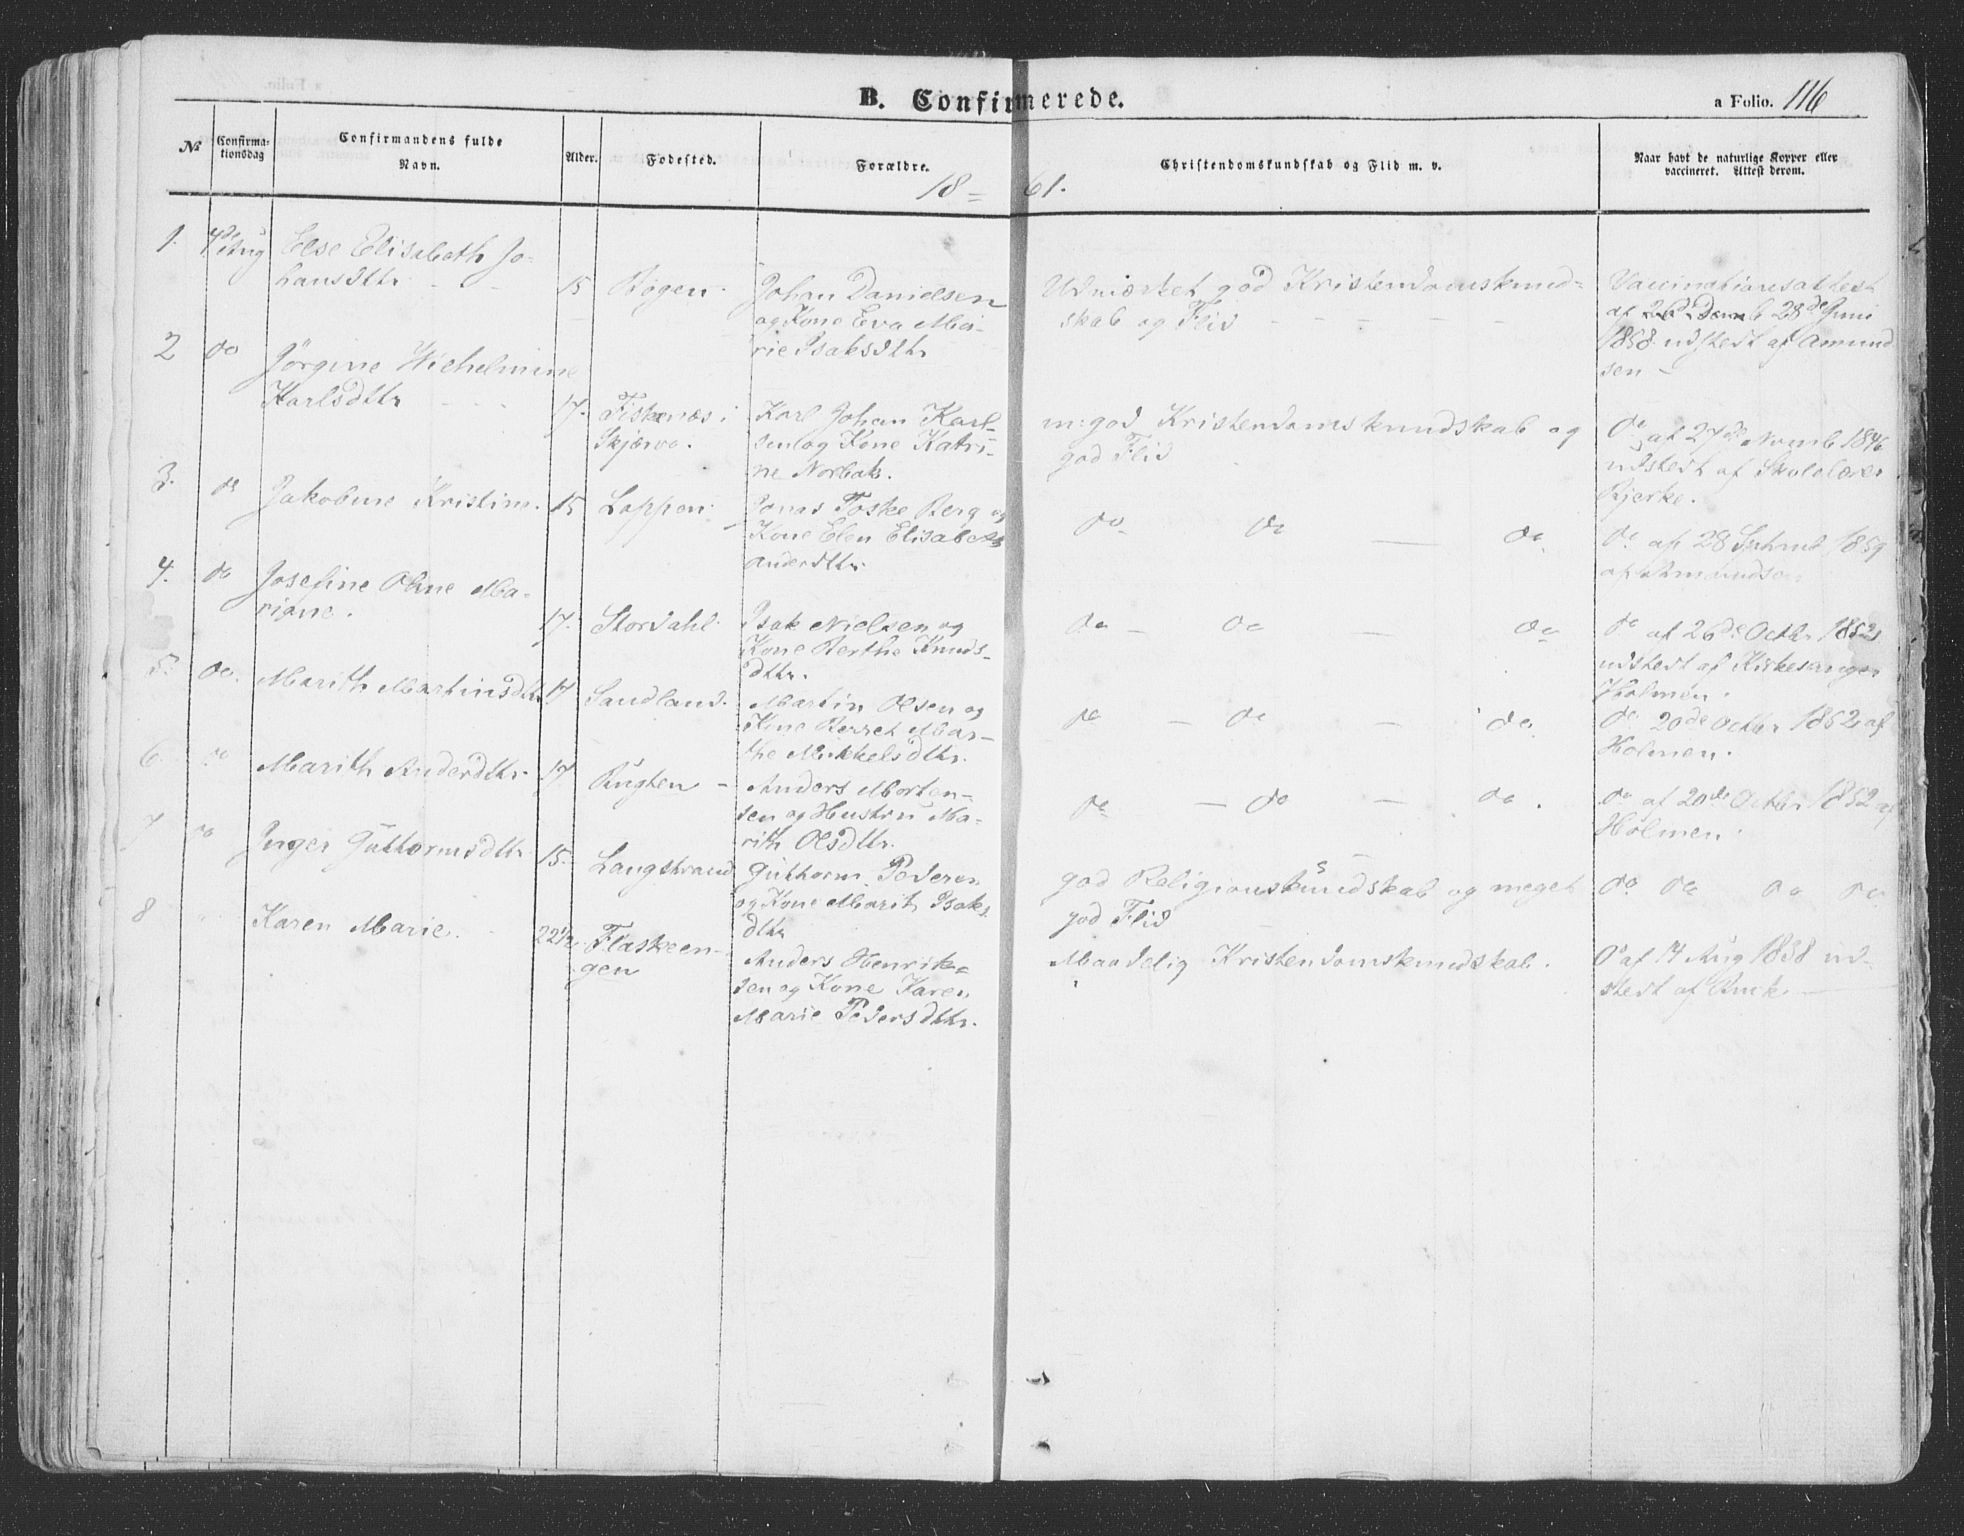 B. Confirmerede.
a Folio. 116
№
Confirma-
tionsdag
Confirmandens fulde
Navn.
Alder.
Fødested.
Forældre.
Christendomskundskab og Flid m. v.
Naar havt de naturlige Kopper eller
vaccineret. Attest derom.
18 = 61.
1. 4de Aug Else Elisabeth Jo-
hansdttr 15 Bogen Johan Danielsen
og Kone Eva Ma-
rie Isaksdttr
Udmærket god Kristendomskund-
skab og Flid
Vaccinationsattest
af 28de Juni
1858 udstedt af Amund
sen
2 do Jørgine Wilhelmine
Karlsdttr 17. Fiskenæs i
Skjærvø.
Karl Johan Karl-
sen og Kone Katri-
ne Norbak.
m: god Kristendomskundskab og
god Flid
do af 27de Novmb 1846
udstedt af Skolelærer
Bjerke.
3. do Jakobine Kristine. 15 Loppen
Jonas Foske Berg og
Kone Elen Elisabeth
Andersdttr
do do do
do af 28 Septmb 1859
af Amundsen
4. do Josefine Oline Ma-
riane. 17. Stordahl
Isak Nielsen og
Kone Berthe Knuds-
dttr.
do do do
do af 26de Octbr 1852
udstedt af Kirkesanger
Holmen.
5. do. Marith Martinsdttr 17 Sandland.
Martin Olsen og
Kone Berret Mar-
the Mikkelsdttr.
do do do.
do 20de Octbr 1852 af
Holmen.
6 do Marith Andersdttr. 17
Anders Morten-
sen og Hustru Ma-
rith Olsdttr.
do do do.
do af 20de Octbr 1852 af
Holmen.
7 do Inger Guttormsdttr 15. Langstrand
Guttorm Pedersen
og Kone Marit Isaks
dttr
god Religionskundskab og meget
god Flid
do do do do.
8 Karen Marie. 22½ Flaskeen-
gen
Anders Henrik-
sen og Kone Karen
Marie Pedersdttr.
Maadelig Kristendomskundskab.
do af 14 Aug 1838 ud-
stedt af